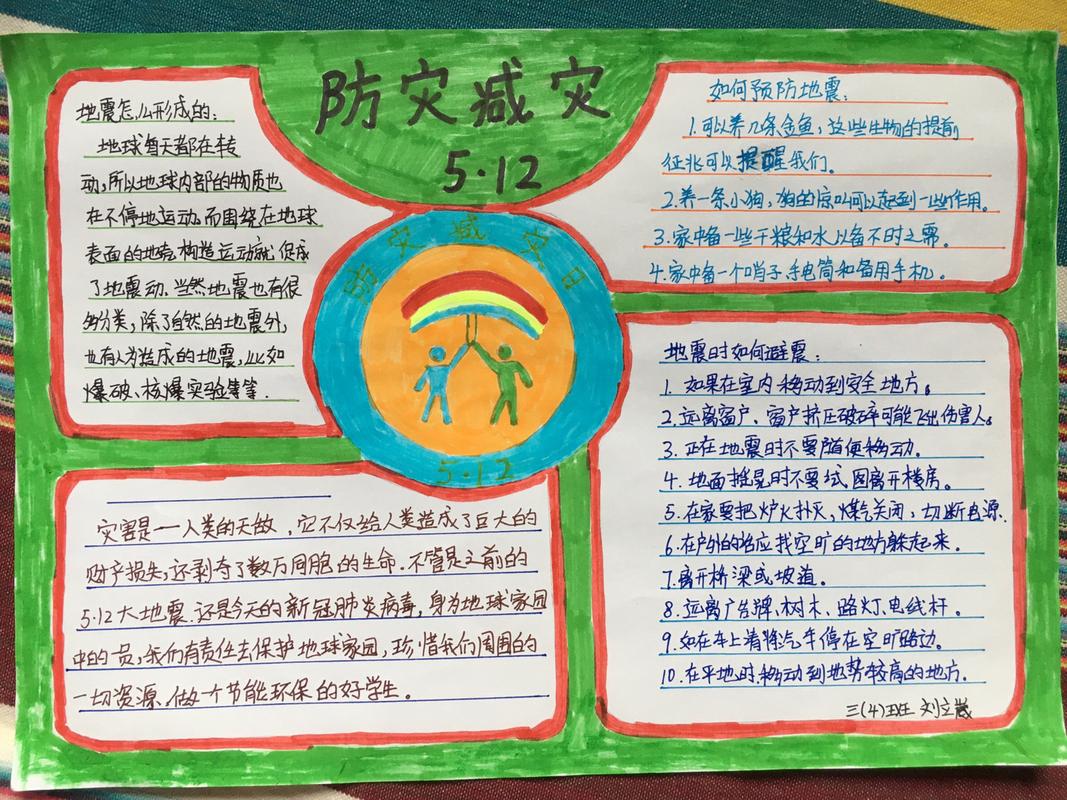 防灾减灾
5·12
地震怎么形成的:
地球每天都在转
动,所以地球内部的物质也
在不停地运动,而围绕在地球
表面的地壳构造运动就促成
了地震动.当然地震也有很
多分类,除了自然的地震外,
也有人为造成的地震,比如
爆破、核爆实验等等.
如何预防地震:
1.可以养几条金鱼,这些生物的提前
征兆可以提醒我们.
2.养一条小狗,狗的惊叫可以起到一些作用。
3.家中备一些干粮和水以备不时之需.
4.家中备一个哨子,手电筒和备用手机.
防灾减灾日
5·12
灾害是一人类的天敌,它不仅给人类造成了巨大的
财产损失,还剥夺了数万同胞的生命.不管是之前的
5.12大地震.还是今天的新冠肺炎病毒,身为地球家园
中的一员,我们有责任去保护地球家园,珍惜我们周围的
一切资源.做一个节能环保的好学生.
地震时如何避震:
1.如果在室内移动到安全地方。
2.远离窗户、窗户挤压破碎可能飞出伤害人。
3.正在地震时不要随便移动.
4.地面摇晃时不要试图离开楼房.
5.在家要把炉火扑灭,煤气关闭,切断电源.
6.在户外的话应找空旷的地方躲起来.
7.离开桥梁或坡道.
8.远离广告牌,树木、路灯、电线杆.
9.如在车上请将汽车停在空旷路边.
10.在平地时移动到地势较高的地方.
三(4)班 刘立崴